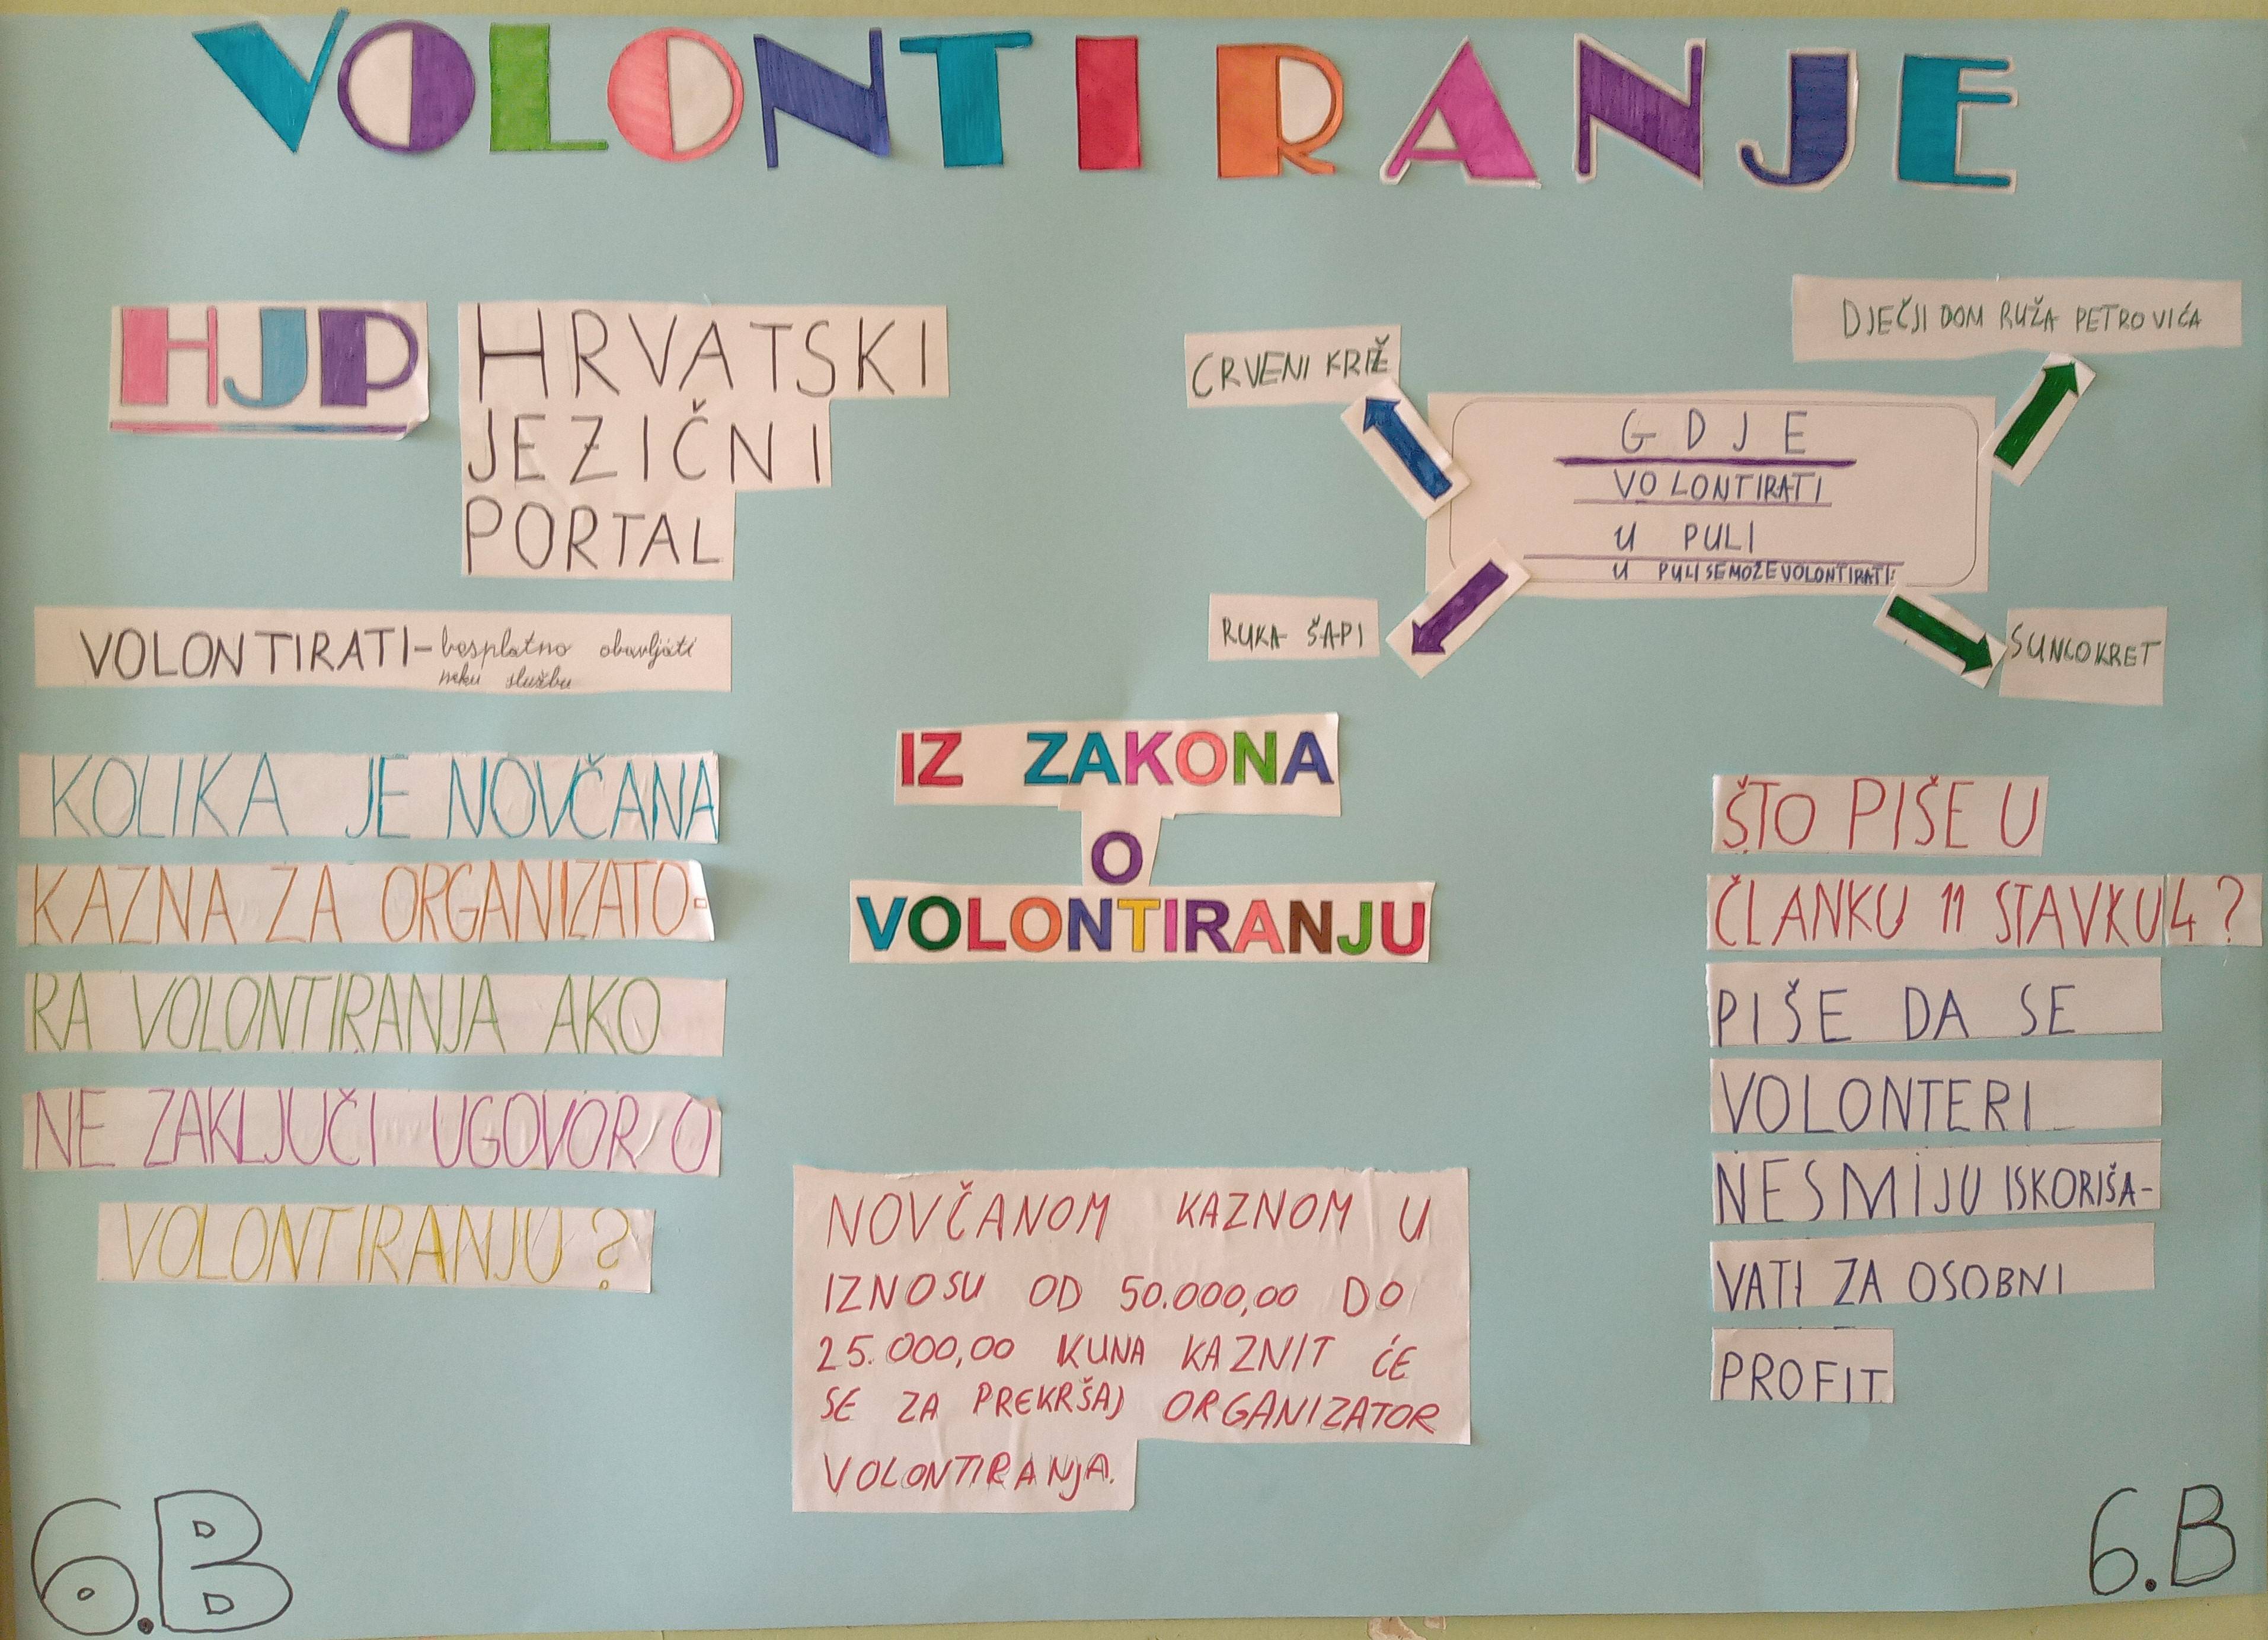 VOLONTIRANJE
HJP
HRVATSKI
JEZIČNI
PORTAL
VOLONTIRATI-besplatno obavljati
neku službu
CRVENI KRIŽ
DJEČJI DOM RUŽA PETROVIĆA
GDJE
VOLONTIRATI
U PULI
U PULI SE MOŽE VOLONTIRATI:
RUKA ŠAPI
SUNCOKRET
KOLIKA JE NOVČANA
KAZNA ZA ORGANIZATO-
RA VOLONTIRANJA AKO
NE ZAKLJUČI UGOVOR O
VOLONTIRANJU?
IZ ZAKONA
O
VOLONTIRANJU
NOVČANOM KAZNOM U
IZNOSU OD 50.000,00 DO
25.000,00 KUNA KAZNIT ĆE
SE ZA PREKRŠAJ ORGANIZATOR
VOLONTIRANJA.
ŠTO PIŠE U
ČLANKU 11 STAVKU 4?
PIŠE DA SE
VOLONTERI
NESMIJU ISKORIŠA-
VATI ZA OSOBNI
PROFIT
6.B
6.B